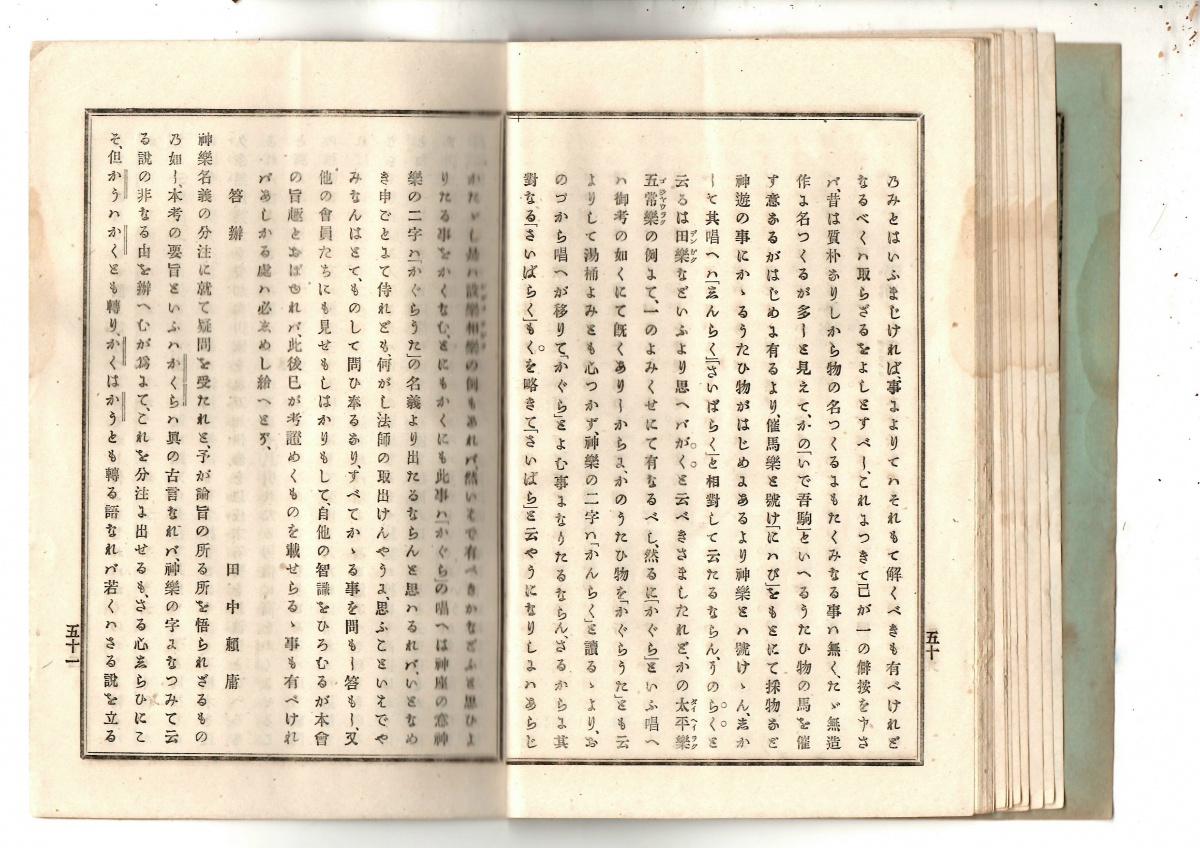 乃みとはいふまじければ事よよりてハそれもて解くべきも有べけれど
なるべくハ取らざるをよしとすべし、これよつきて己が一の僻按をヤさ
バ、昔は質朴ありしから物の名つくるよもたくみなる事ハ無く、たゞ無造
作よ名つくるが多しと見えて、かの「いで吾駒」といへるうたひ物の馬を催
す意あるがはじめよ有るより、催馬樂と號け「にハび」をもとにて採物あど
神遊の事にかゝるうたひ物がはじめよあるより神樂とハ號けゝん、ゑか
して其唱へハ「ゑんらく」「さいばらく」と相對して云たるならん、りのらくと
云るは田樂などいふより思へバがくと云べきさましたれど、かの太平樂
五常樂の例よて、一のよみくせにて有なるべし、然るに「かぐら」といふ唱へ
ハ御考の如くにて既くありしからよかのうたひ物を「かぐらうた」とも云
よりして湯桶よみとも心つかず、神樂の二字ハ「かんらく」と讀るゝより、お
のづから唱へが移りて、「かぐら」とよむ事よなりたるならん、さるからよ其
對なる「さいばらく」もくを略きて「さいばら」と云やうになりしよハあらじ
五十
りたる事をかくなむ、とにもかくにも此事ハ「かぐら」の唱へは神座の意神
樂の二字ハ「かぐらうた」の名義より出たるならんと思ハるれバ、いとなめ
き申ごとよて侍れども、何がし法師の取出けんやうよ、思ふこといえでや
みなんはとて、ものして問ひ奉るあり、すべてかゝる事を問もし答もし又
他の會員たちにも見せもしはかりもして自他の智識をひろむるが本會
の旨趣とおぼゆれバ、此後已が考證めくものを載せらるゝ事も有べけれ
バあしかる處ハ必ゑめし給へとヌ、
答辨 田中頼庸
神樂名義の分注に就て疑問を受たれと、予が論旨の所る所を悟られざるもの
乃如し、本考の要旨といふハかくらハ眞の古言なれバ、神樂の字よなつみて云
る説の非なる由を辨へむが爲よて、これを分注よ出せるも、さる心ゑらひにこ
そ、但かうハかくとも轉り、かくはかうとも轉る語なれバ若くハさる説を立る
五十一